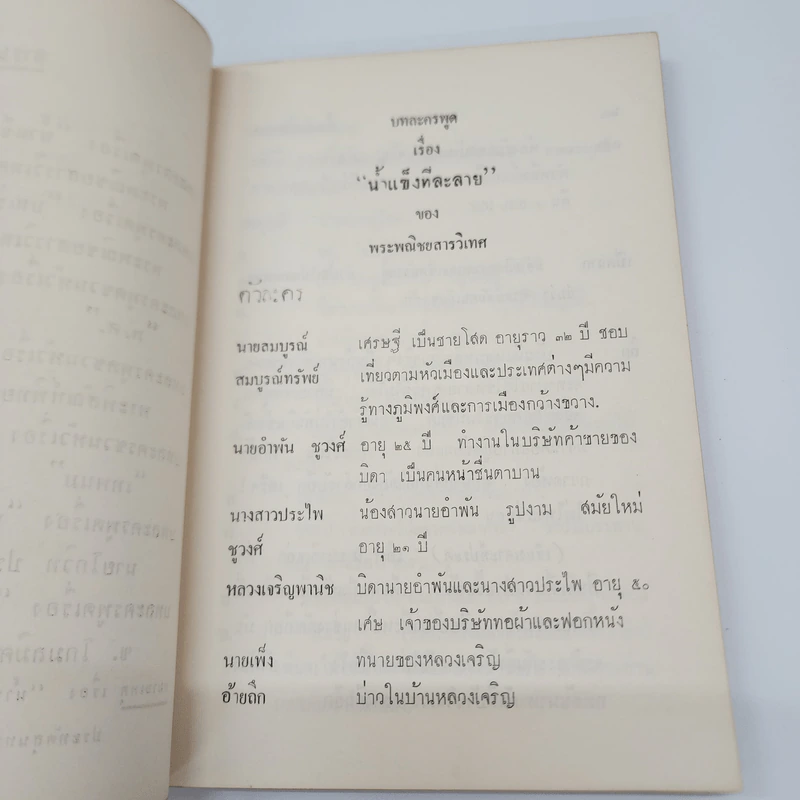 บทละครพูด
เรื่อง
“น้ำแข็งที่ละลาย”
ของ
พระพณิชยสารวิเทศ
ตัวละคร
นายสมบูรณ์ เศรษฐี เป็นชายโสด อายุราว ๓๒ ปี ชอบ
สมบูรณ์ทรัพย์ เที่ยวตามหัวเมืองและประเทศต่างๆมีความ
รู้ทางภูมิพงศ์และการเมืองกว้างขวาง.
นายอำพัน ชูวงศ์ อายุ ๒๕ ปี ทำงานในบริษัทค้าขายของ
บิดา เป็นคนหน้าชื่นตาบาน
นางสาวประไพ น้องสาวนายอำพัน รูปงาม สมัยใหม่
ชูวงศ์ อายุ ๒๑ ปี
หลวงเจริญพานิช บิดานายอำพันและนางสาวประไพ อายุ ๕๐
เศษ เจ้าของบริษัททอผ้าและฟอกหนัง
นายเพ็ง ทนายของหลวงเจริญ
อ้ายถึก บ่าวในบ้านหลวงเจริญ